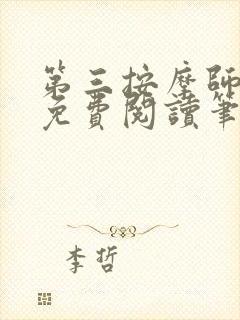 第三按摩師
免費閱讀筆
李哲